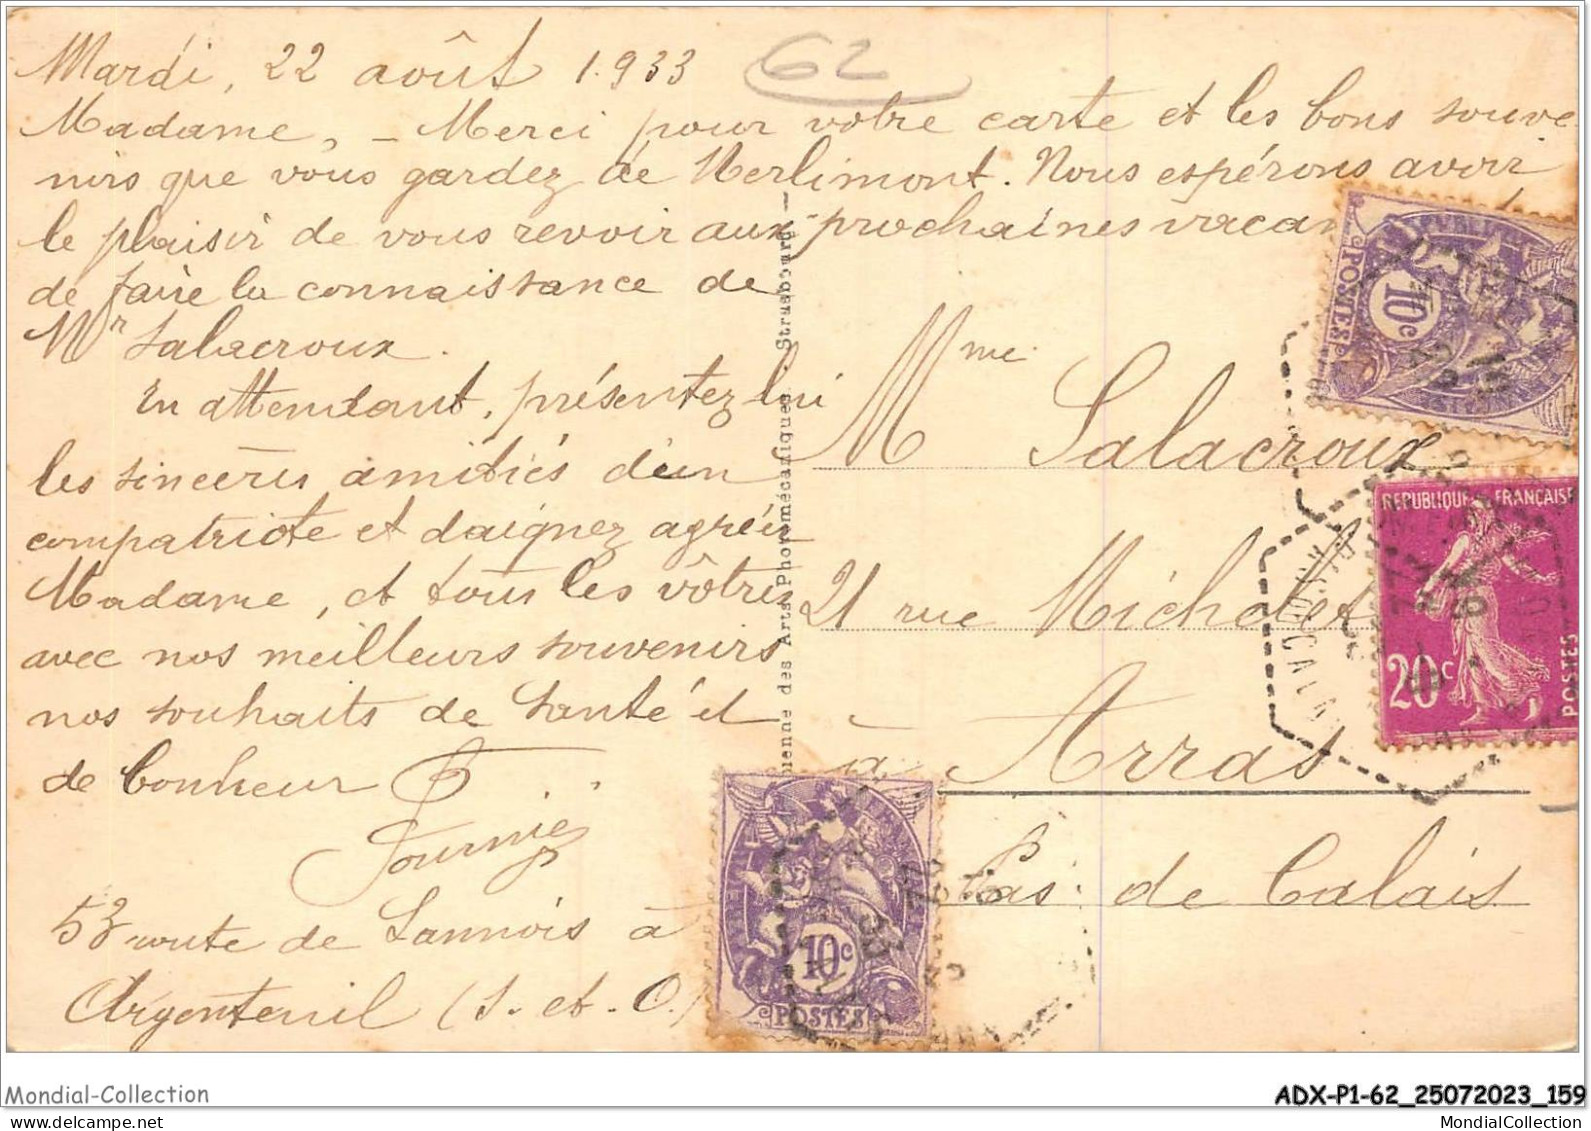 Mardi, 22 août 1.933
62
Madame, - Merci pour votre carte et les bons souve
nirs que vous gardez de Merlimont. Nous espérons avoir
le plaisir de vous revoir aux prochaines vacan
de faire la connaissance de
Mr Salacroux.
En attendant, présentez lui
les sincères amitiés d'un
compatriote et daignez agréer
Madame, et tous les vôtres
avec nos meilleurs souvenirs
nos souhaits de santé et
de bonheur
Fournier
53 route de Sannois à
Argenteuil (S.-et-O.)
ienne des Arts Photomécaniques. - Strasbourg. -
Mme Salacroux
21 rue Michelet
à Arras
Pas de Calais
REPUBLIQUE
POSTES
10c
REPUBLIQUE FRANÇAISE
20c
POSTES
10c
POSTES
Mondial-Collection
ADX-P1-62_25072023_159
MondialCollection